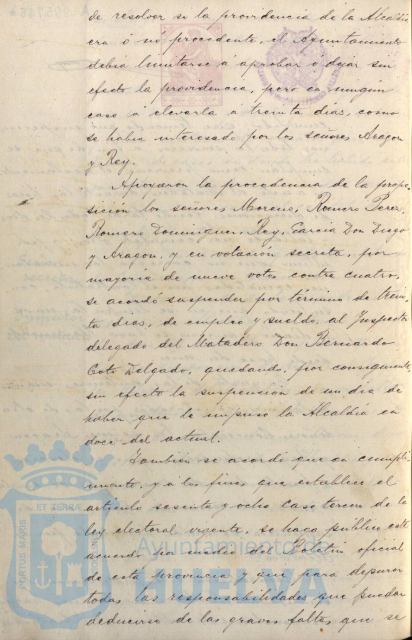 de resolver si la providencia de la Alcaldía
era ó nó procedente, el Ayuntamiento
debía limitarse a aprobar o dejar sin
efecto la providencia, pero en ningun
caso a elevarla a treinta dias, como
se habia interesado por los señores Aragon
y Rey.
Apoyaron la procedencia de la propo-
sición los señores Moreno, Romero Perez,
Romero Dominguez, Rey, Garcia Don Diego
y Aragon, y en votación secreta, por
mayoria de nueve votos contra cuatro,
se acordó suspender por término de trein-
ta dias, de empleo y sueldo, al Inspector
delegado del Matadero Don Bernardo
Coto Delgado, quedando, por consiguiente
sin efecto la suspención de un dia de
haber que le impuso la Alcaldia en
doce del actual.
También se acordó que en cumpli-
miento, y a los fines que establece el
articulo sesenta y ocho caso tercero de la
ley electoral vigente, se haga público este
acuerdo por medio del Boletin oficial
de esta provincia y que para depurar
todas las responsabilidades que puedan
deducirse de las graves faltas que se
PORTUS MARIS
ET TERRÆ
Ayuntamiento de
HUELVA